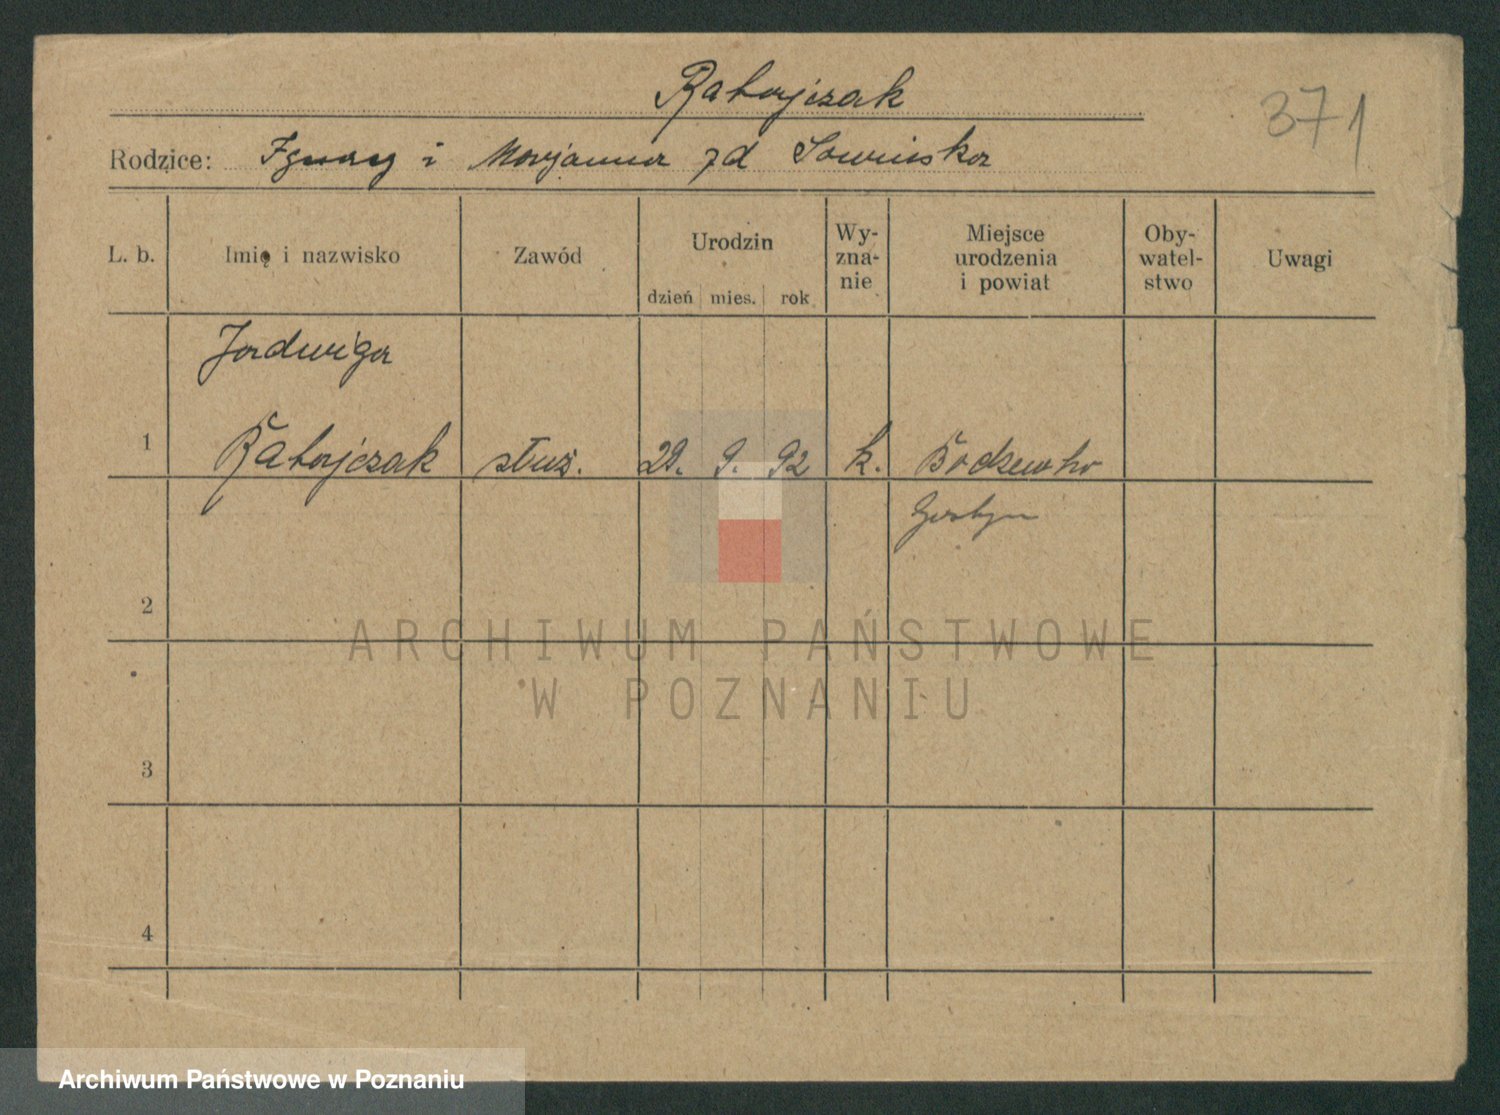 Ratajczak
371
Rodzice: Ignacy i Marjanna zd Sowińska
L. b. Imię i nazwisko Zawód Urodzin dzień mies. rok Wy-zna-nie Miejsce urodzenia i powiat Oby-watel-stwo Uwagi
Jadwiga
1 Ratajczak służ. 29. 9. 92 k. Bodzewko
Gostyń
2
ARCHIWUM PAŃSTWOWE
W POZNANIU
3
4
Archiwum Państwowe w Poznaniu